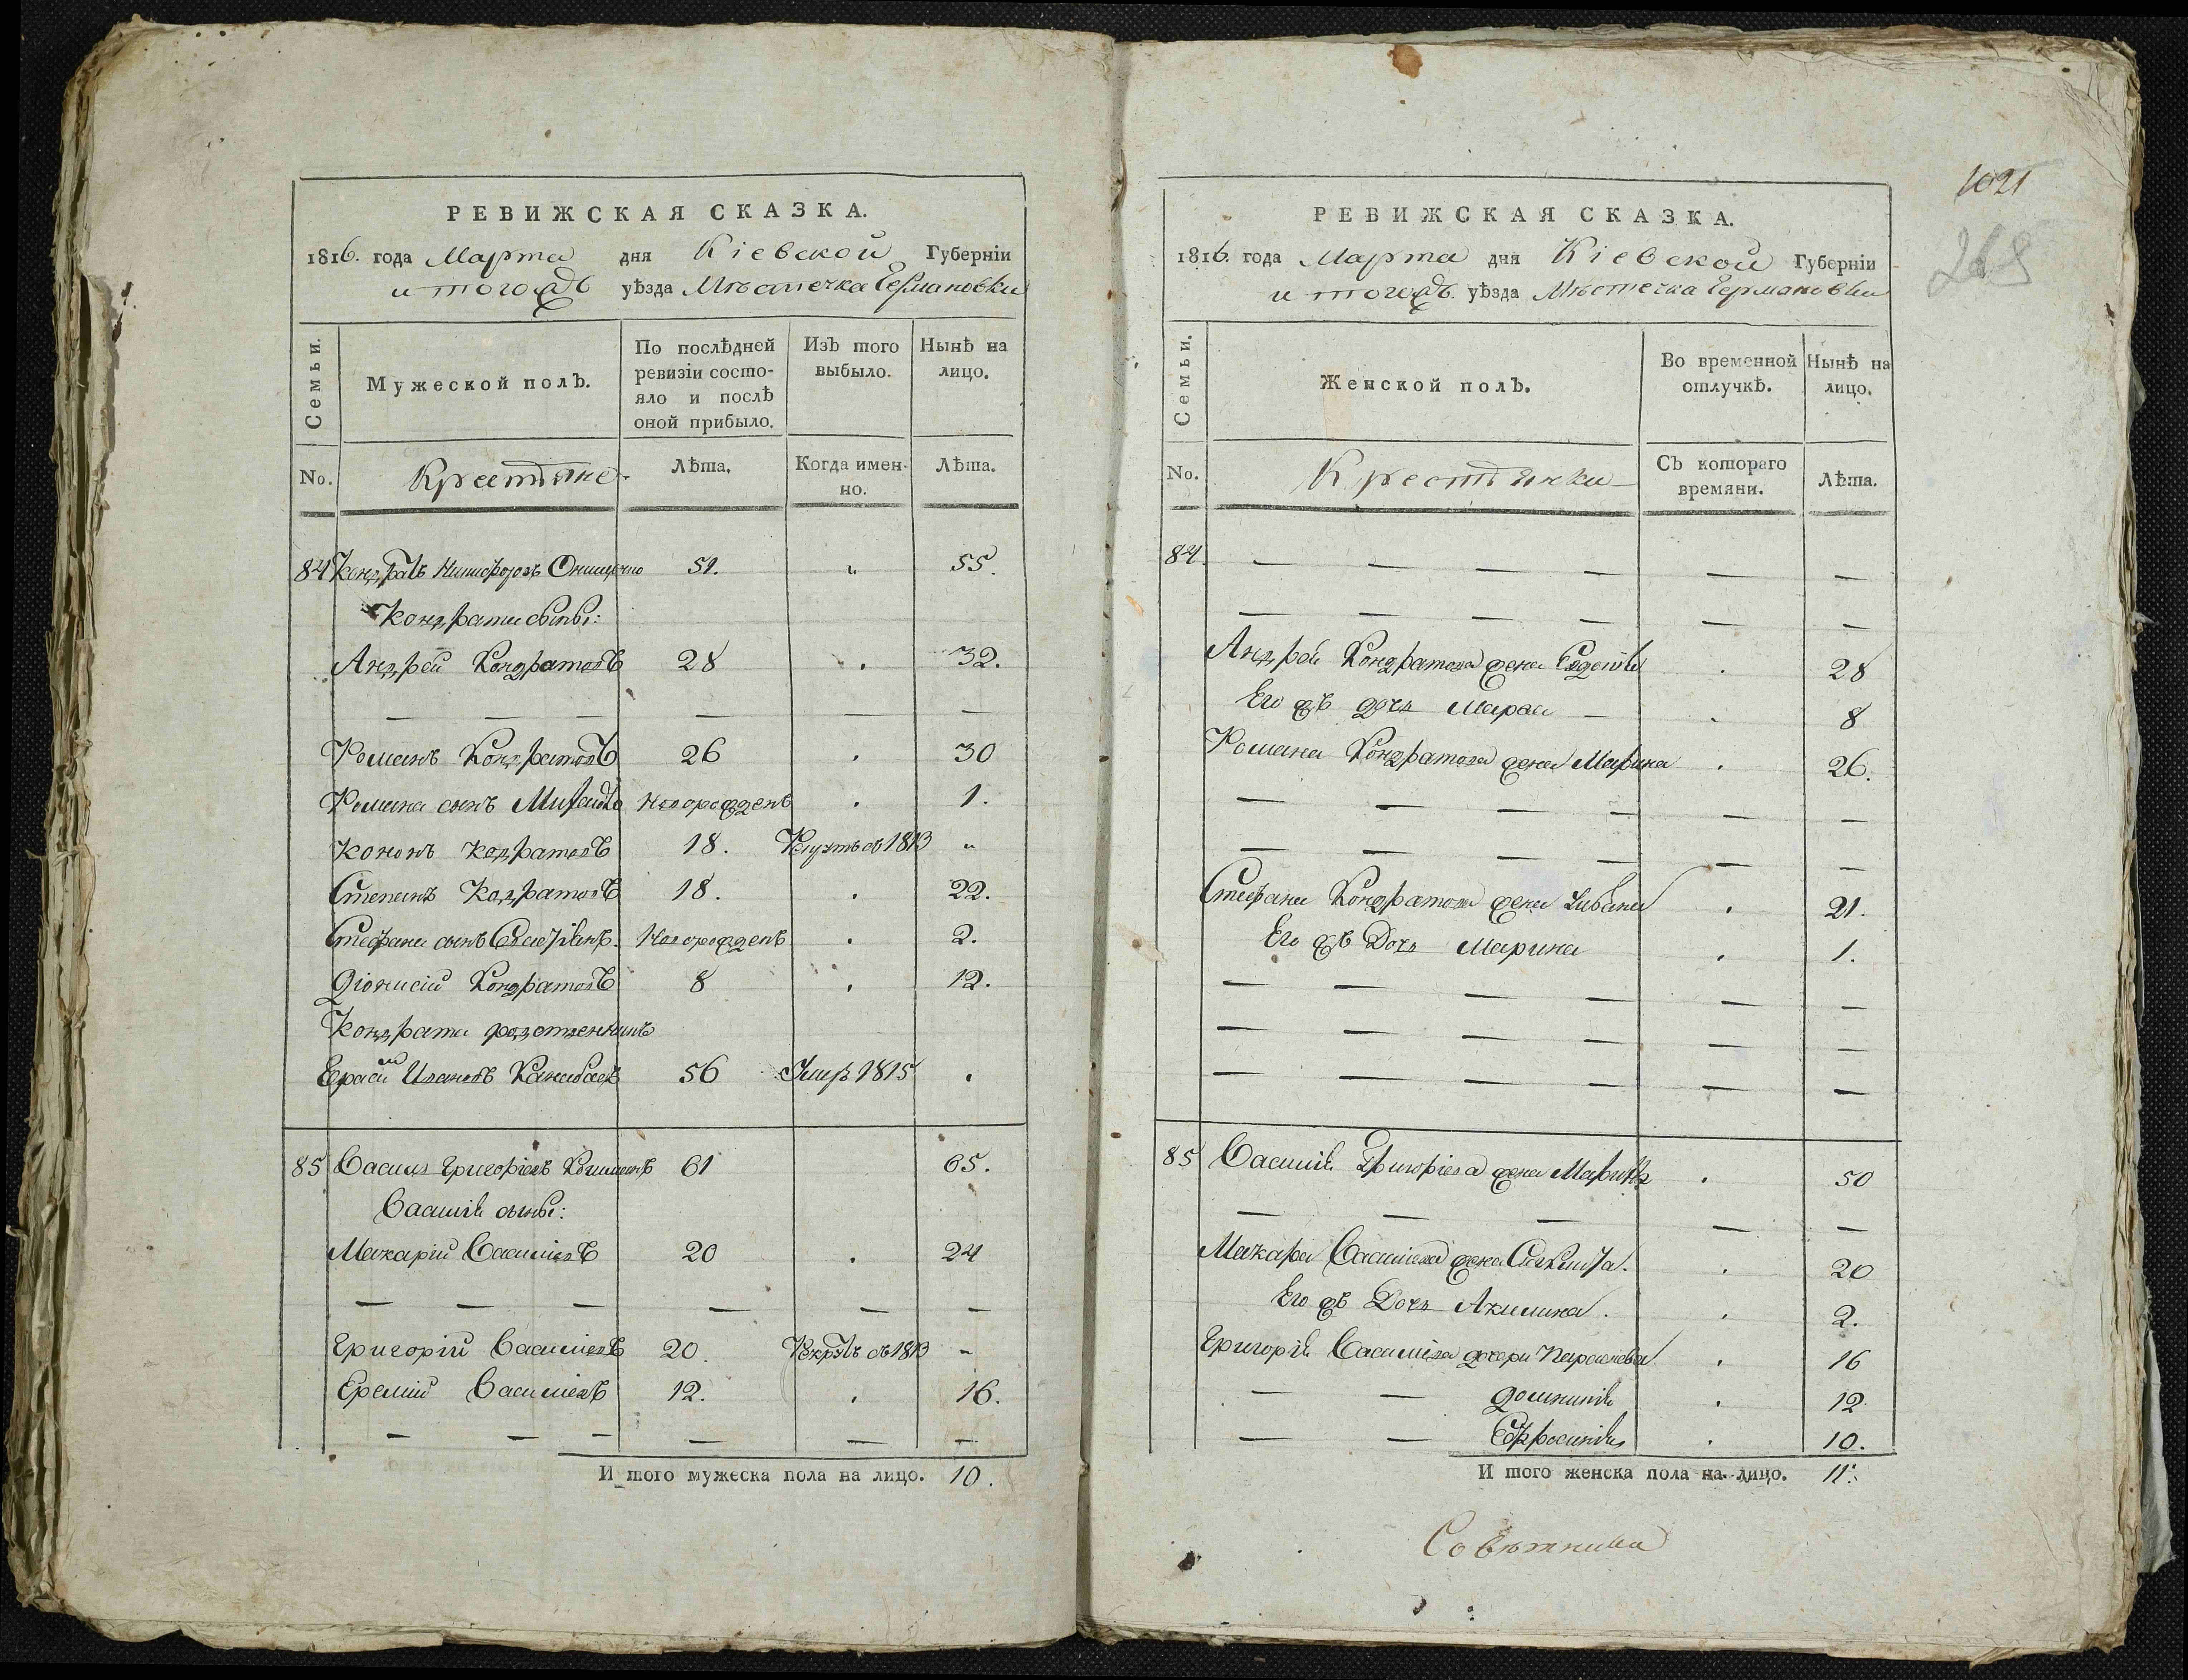 РЕВИЖСКАЯ СКАЗКА.
1816. года Марта дня Кіевской Губерніи
и тогожъ уѣзда Мѣстечка Германовки
Семьи.
Мужеской полъ.
По послѣдней ревизіи состояло и послѣ оной прибыло.
Изъ того выбыло.
Нынѣ на лицо.
No.
Крестьяне
Лѣта.
Когда именно.
Лѣта.
84 Кондратъ Никифоровъ Онищенко 51. " 55.
Кондрата сыны:
Андрей Кондратовъ 28 . 32.
— — — — — —
Романъ Кондратовъ 26 . 30
Романа сынъ Михайло новорожденъ . 1.
Кононъ Кондратовъ 18. Рекрутъ въ 1813 "
Степанъ Кондратовъ 18. . 22.
Стефана сынъ новорожденъ . 2.
Діонисій Кондратовъ 8 . 12.
Кондрата родственникъ
Ивановъ 56 Умръ 1815 .
85 Василь Григоріевъ 61 65.
Василія сыны:
Макарій Василіевъ 20 . 24
— — — — — —
Григорій Василіевъ 20. Рекрутъ въ 1813 "
Еремій Василіевъ 12. . 16.
— — — — — —
И того мужеска пола на лицо. 10.
1021
268
РЕВИЖСКАЯ СКАЗКА.
1816. года Марта дня Кіевской Губерніи
и тогожъ уѣзда Мѣстечка Германовки
Семьи.
Женской полъ.
Во временной отлучкѣ.
Нынѣ на лицо.
No.
Крестьянки
Съ котораго времяни.
Лѣта.
84. — — — — — —
— — — — — —
Андрея Кондратова жена . 28
Его жъ дочь . 8
Романа Кондратова жена Марина . 26.
— — — — — —
— — — — — —
Стефана Кондратова жена . 21.
Его жъ Дочь Марина . 1.
— — — — — —
— — — — — —
— — — — — —
85 Василія Григоріева жена . 50
— — — — —
Макара Василіева жена . 20
Его жъ Дочь Акилина . 2.
Григорія Василіева дочери Параскева . 16
— — Домникія . 12.
— — Ефросинія . 10.
И того женска пола на лицо. 11.
Совѣтника